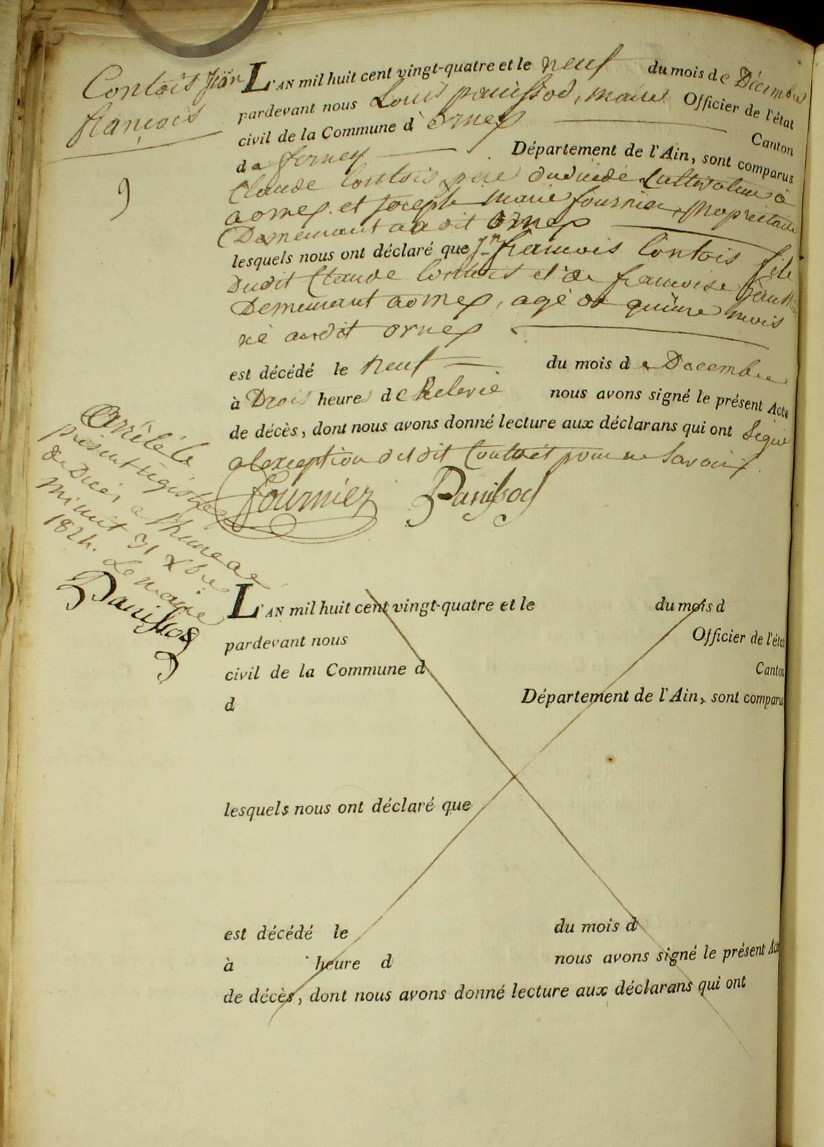 Contois Jean
françois
9
L'AN mil huit cent vingt-quatre et le neuf du mois de Décembre
pardevant nous Louis panissod, maire Officier de l'état
civil de la Commune d'ornex Canton
de ferney Département de l'Ain, sont comparus
Claude Contois père du décédé Cultivateur à
a ornex et joseph marie fournier propriétaire
Demeurant audit Ornex
lesquels nous ont déclaré que Jn françois Contois fils
Dudit Claude Contois et de françoise
Demeurant a ornex, agé de quinze mois
né audit ornex
est décédé le neuf du mois de Decembre
à Trois heures de Relevée nous avons signé le présent Acte
de décès, dont nous avons donné lecture aux déclarans qui ont Signé
a l'exception dudit Contois pour ne Savoir
Fournier Panissod
Arrêté le
présent registre
de Décès a l'heure de
minuit 31 Xbre
1824. Le maire
Panissod
L'AN mil huit cent vingt-quatre et le du mois d
pardevant nous Officier de l'état
civil de la Commune d Canton
d Département de l'Ain, sont comparus
lesquels nous ont déclaré que
est décédé le du mois d
à heure d nous avons signé le présent Acte
de décès, dont nous avons donné lecture aux déclarans qui ont